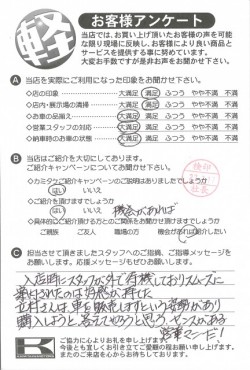 軽
お客様アンケート
当店では、お買い上げ頂いたお客様の声を可能
な限り現場に反映し、お客様により良い商品と
サービスを提供する事に努めています。
大変お手数ですが是非お声をお聞かせ下さい。
A 当店を実際にご利用になった印象をお聞かせ下さい。
◇店の印象 大満足 満足 ふつう やや不満 不満
◇店内・展示場の清掃 大満足 満足 ふつう やや不満 不満
◇お車の品揃え 大満足 満足 ふつう やや不満 不満
◇営業スタッフの対応 大満足 満足 ふつう やや不満 不満
◇納車時のお車の状態 大満足 満足 ふつう やや不満 不満
B 当店はご紹介を大切にしております。
ご紹介キャンペーンについてお聞かせ下さい。
◇カミタケご紹介キャンペーンのご説明はありましたでしょうか
はい いいえ
◇ご紹介を頂けますでしょうか
はい いいえ 機会があれば
◇具体的にご紹介頂ける方とのご関係をお聞かせ頂けますでしょうか
ご親族 ご友人 職場の方 機会があれば紹介したい
C 担当させて頂きましたスタッフへのご指摘、ご指導メッセージを
お願いします。応援メッセージもぜひお願いします。
入店時にスタッフが外で待機しておりスムーズに
案内されたのは好感が持てた
立村さんは車を販売しますという姿勢があり
購入しようと
ご協力に心よりお礼を申し上げます。
今後とも宜しくお引き立てご愛顧の程お願い申し上げます。
またのご来店を心からお待ちしております。